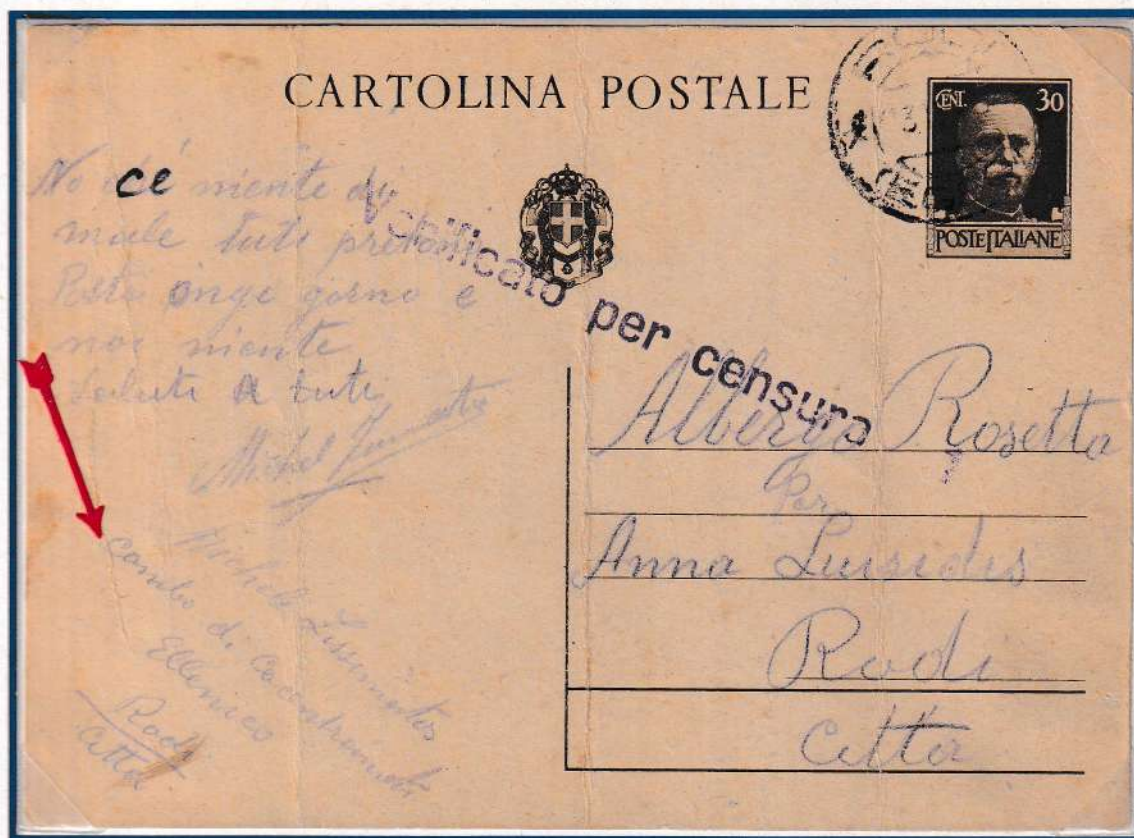 CARTOLINA POSTALE
CENT. 30
POSTE ITALIANE
Verificato per censura
No cé niente di
male tuti
gorno e
noi niente
Saluti a tuti
Michel
Michele
campo di
Ellenico
Rodi
Citta
Albergo Rosetta
Per
Anna
Rodi
Citta